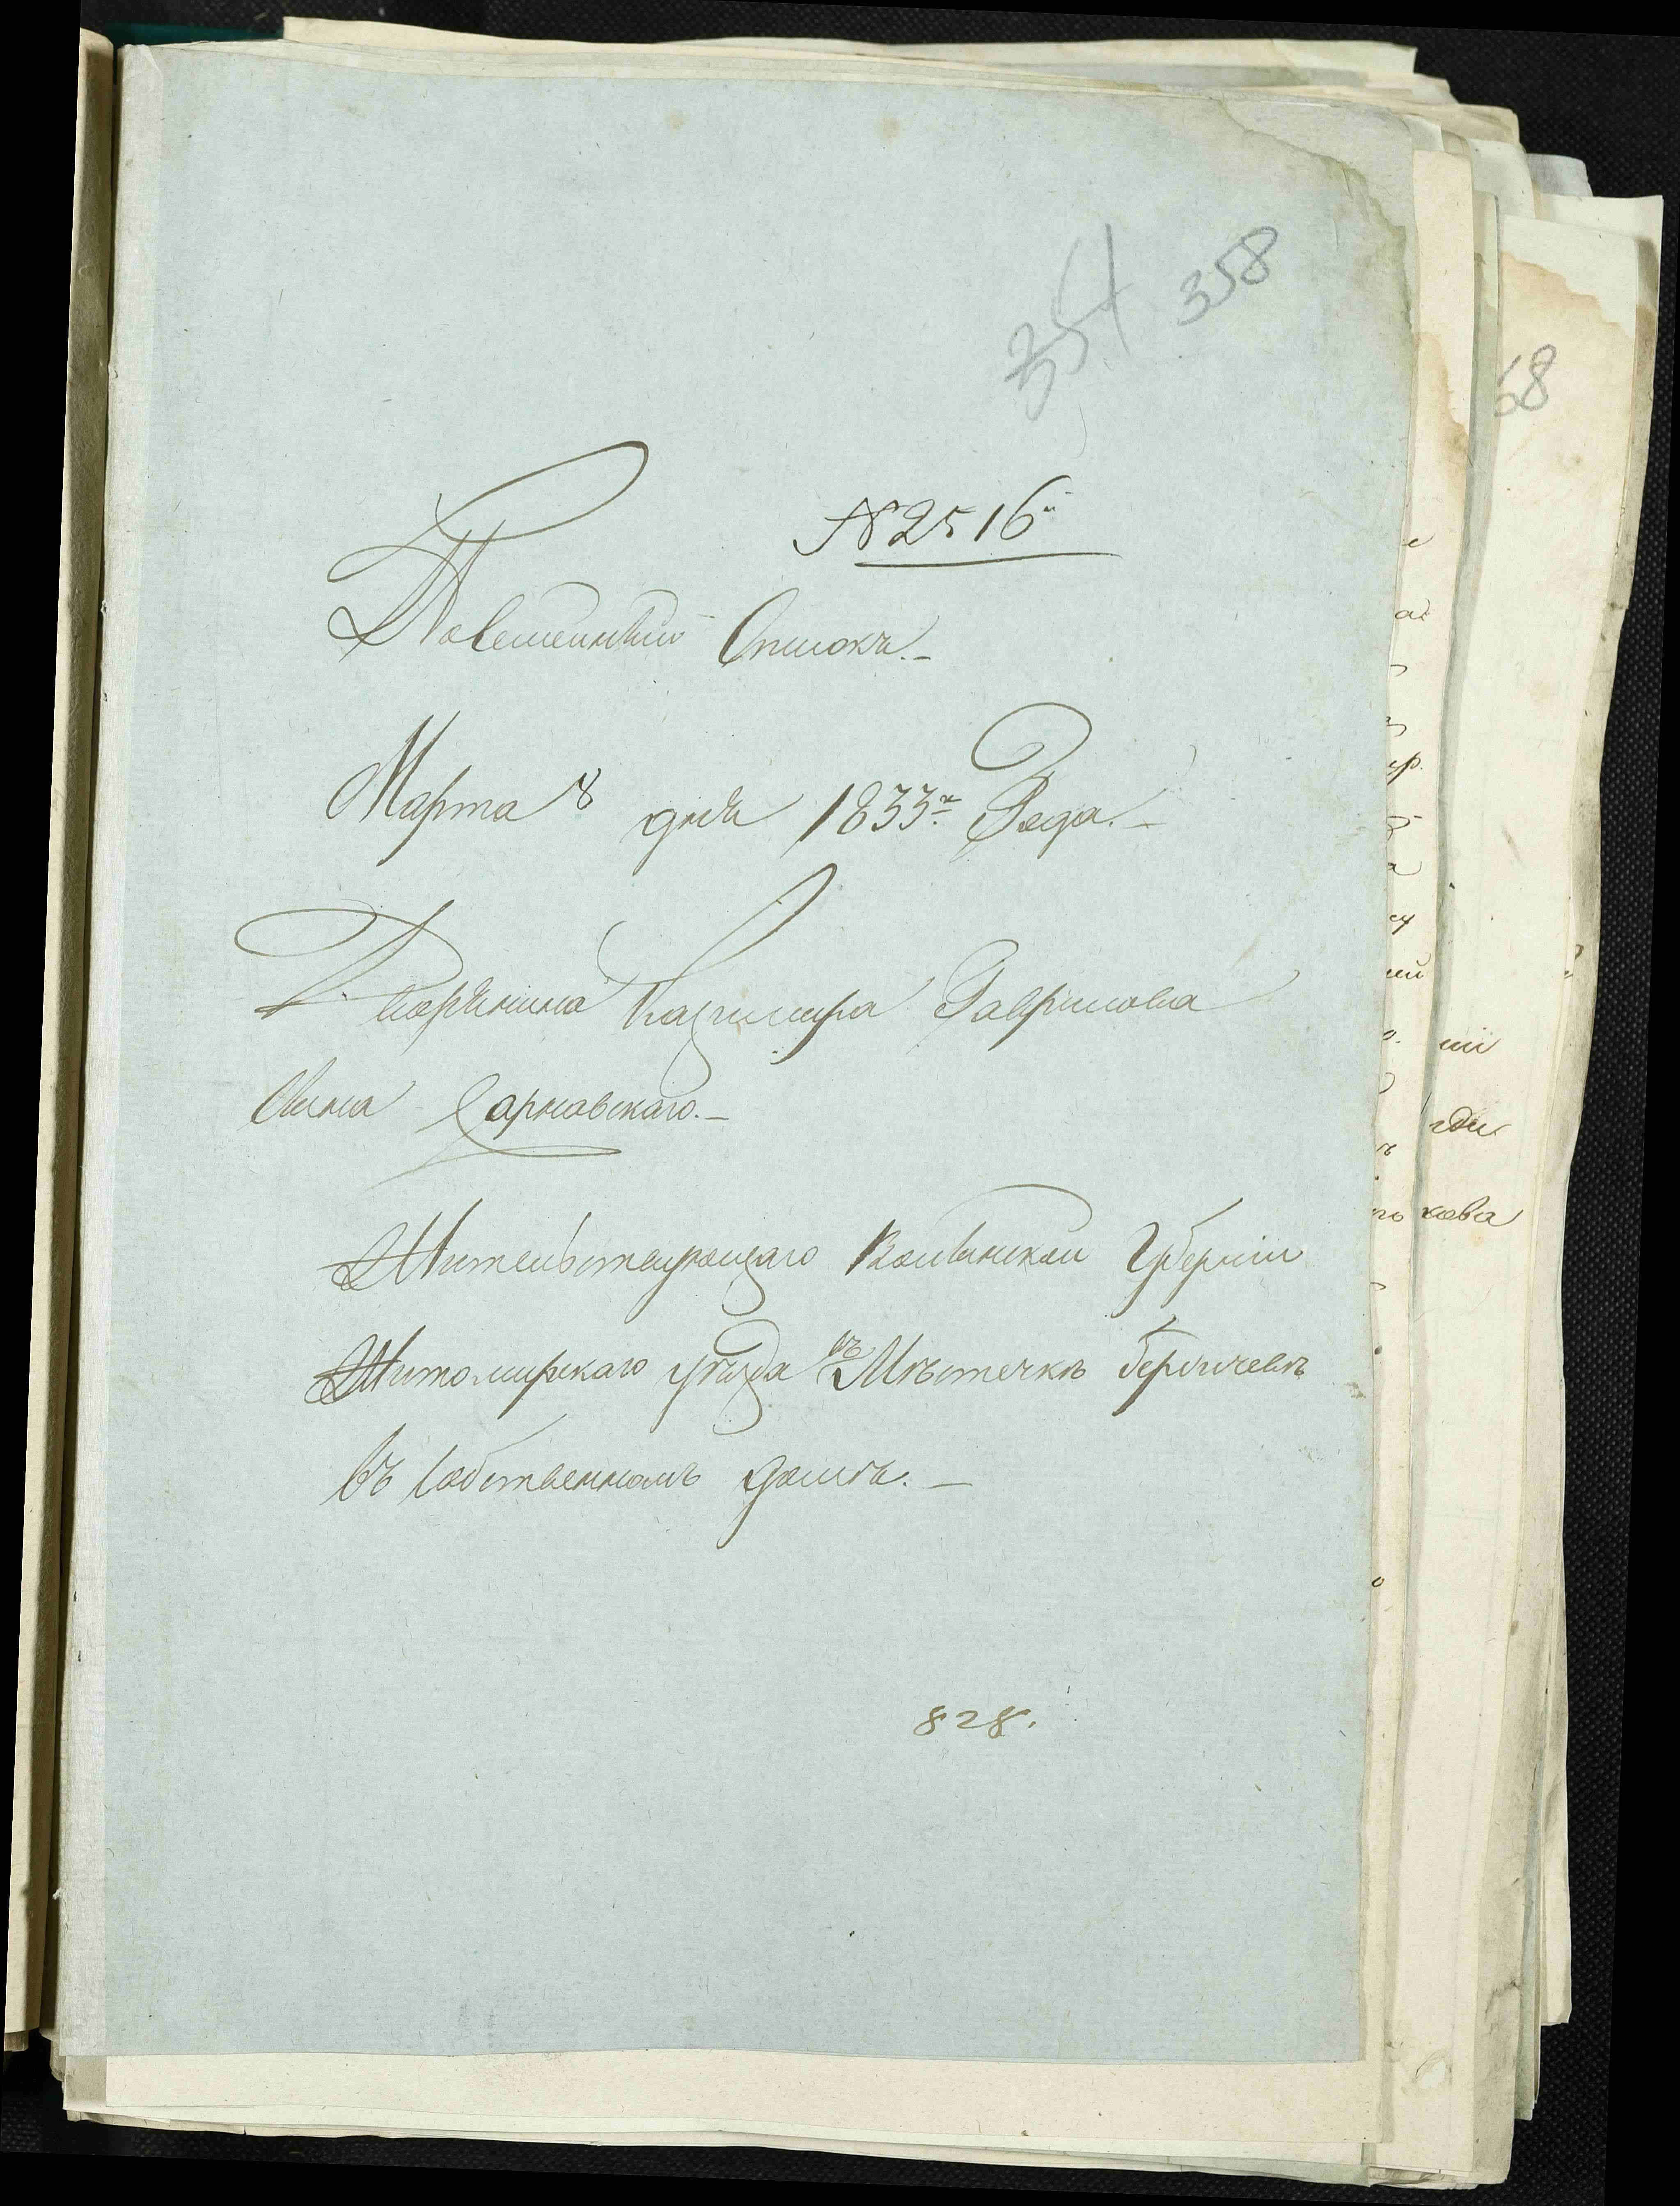 354 358
68
N 2516й
Посемейный Списокъ.-
Марта 8 дня 1833го Года.-
Дворянина Казимира Гаврилова
Сына Сарновскаго.-
Жительствующаго Волынской Губерніи
Житомирскаго уѣзда въ Мѣстечкѣ Бердичевѣ
въ собственномъ домѣ.-
828.